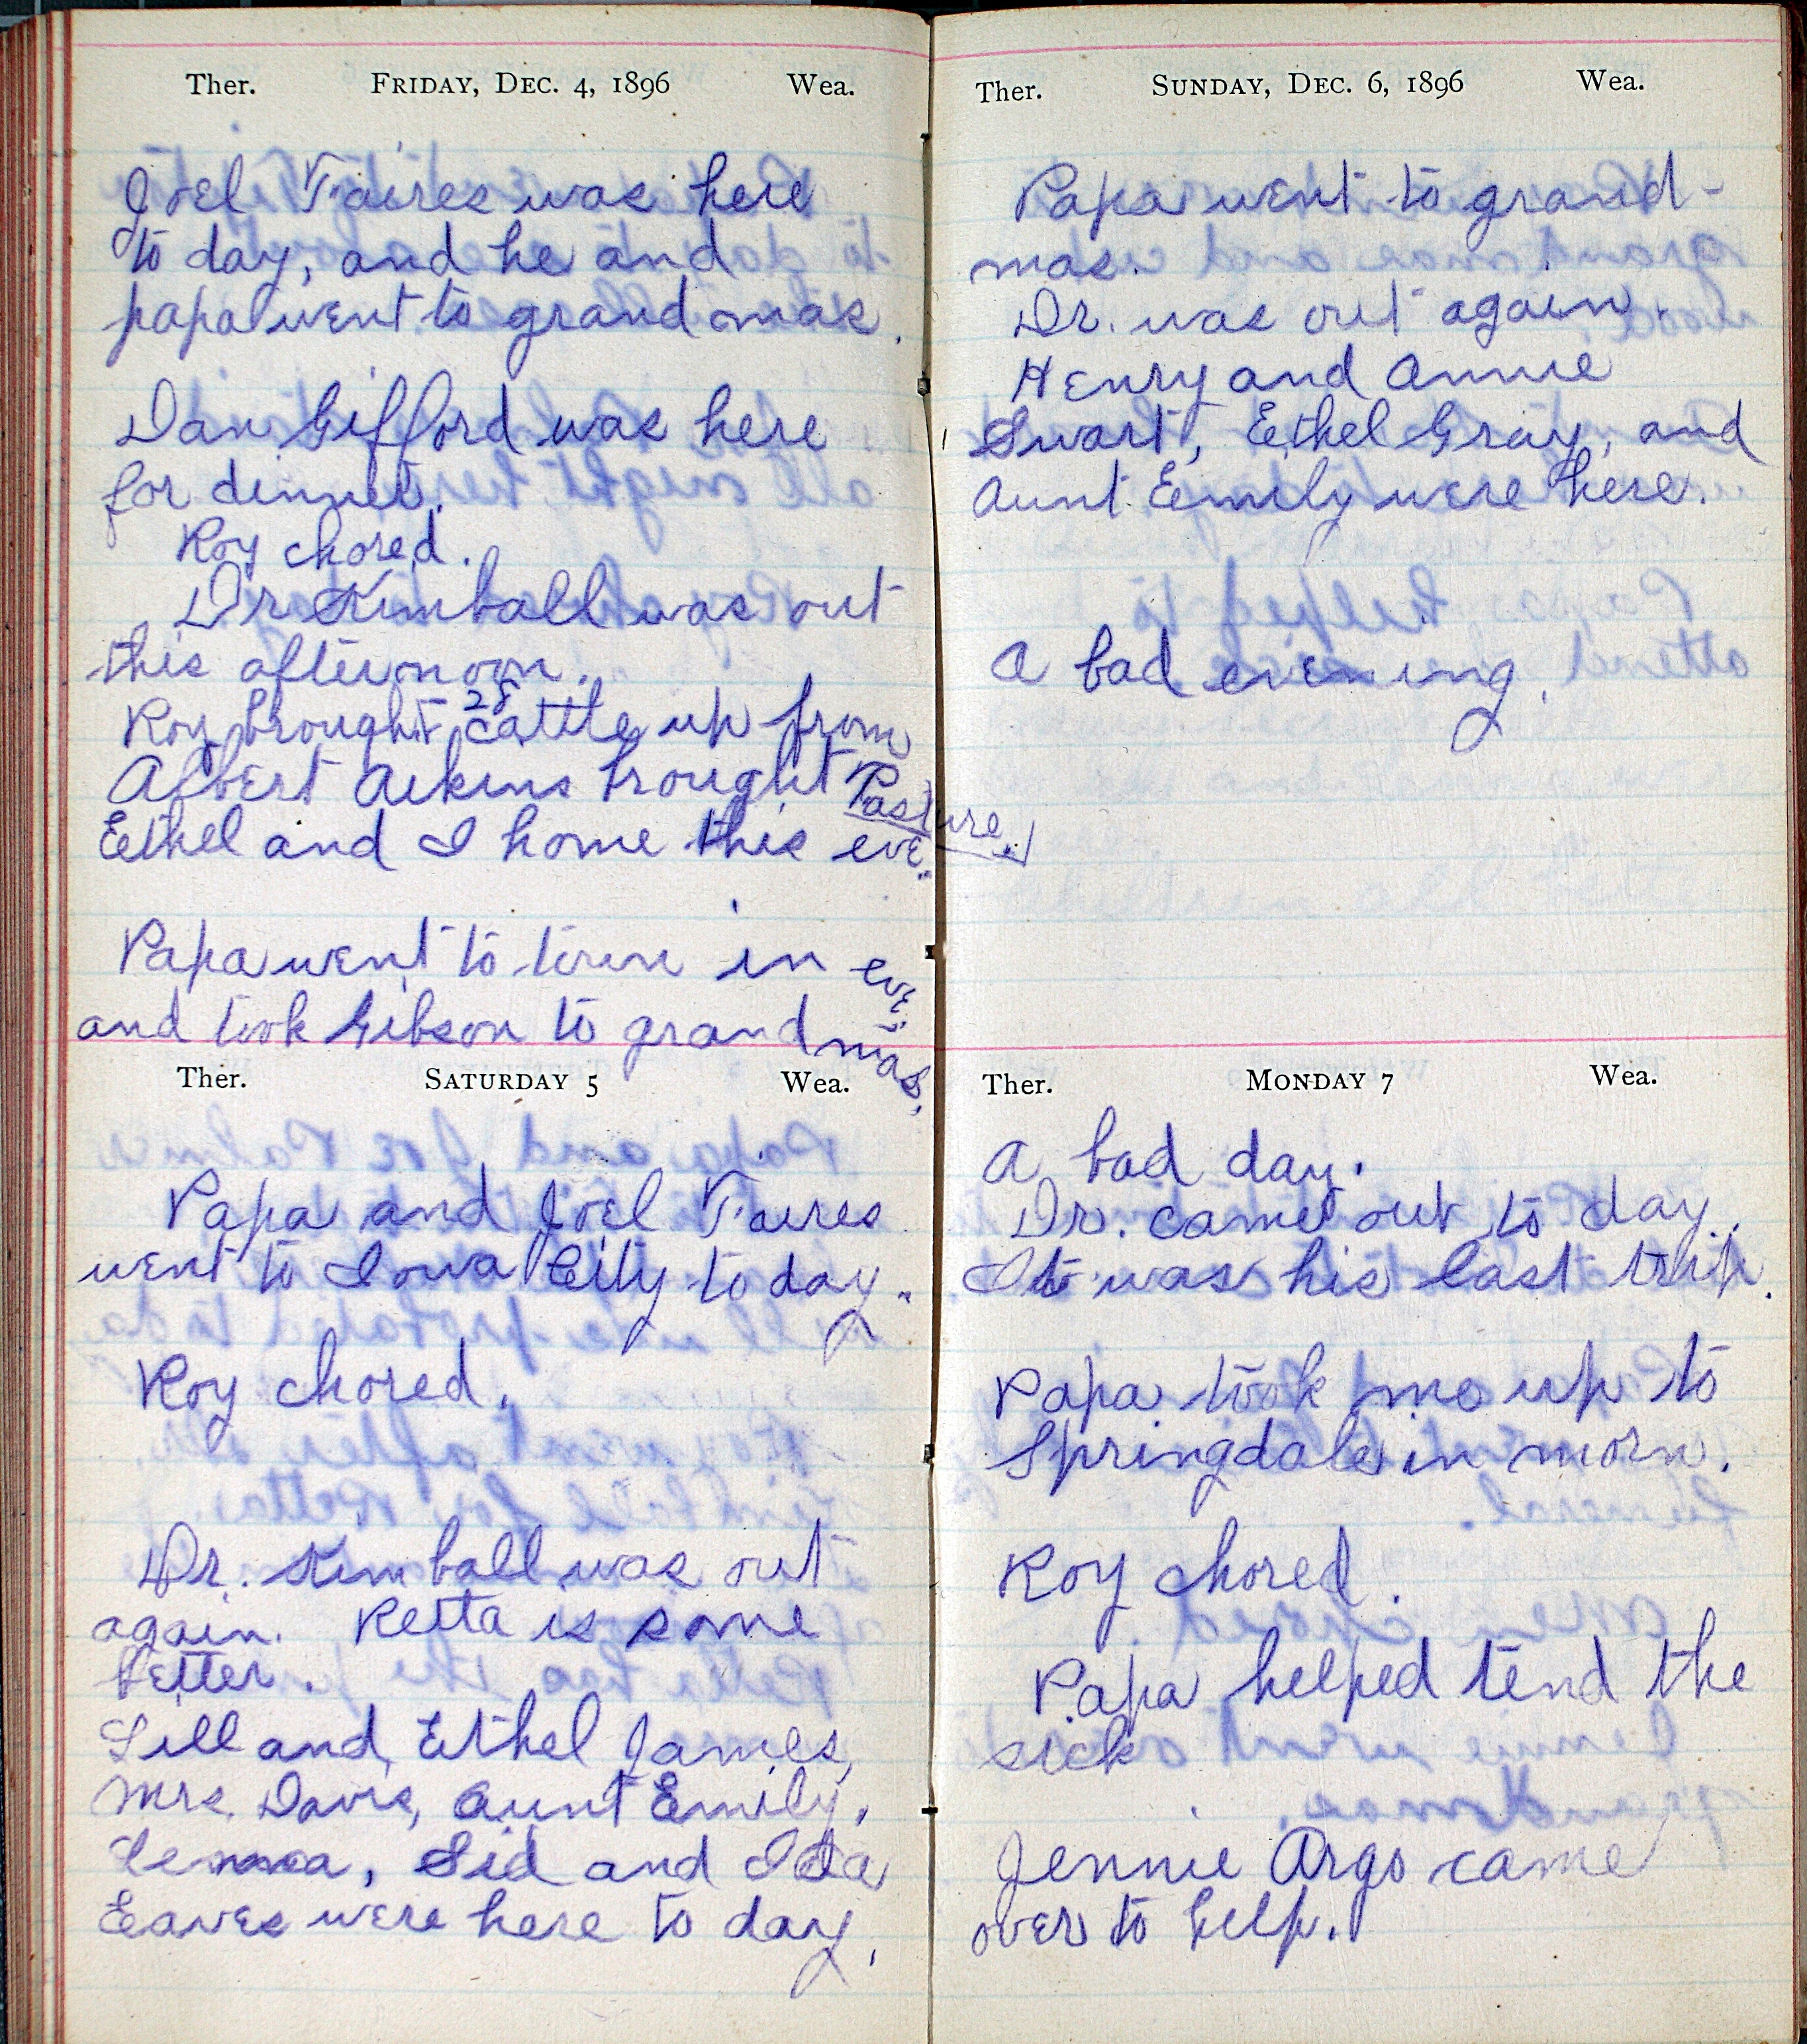 Ther. FRIDAY, DEC. 4, 1896 Wea.
Joel Taires was here
to day, and he and
papa went to grand mas.
Dan Gifford was here
for dinner.
Roy chored.
Dr Kimball was out
this afternoon.
Roy brought 28 cattle up from
Pasture.
Albert Aikins brought
Ethel and I home this eve.
Papa went to town in eve,
and took Gibson to grand mas.
Ther. SATURDAY 5 Wea.
Papa and Joel Taires
went to Iowa City to day.
Roy chored.
Dr. Kimball was out
again. Retta is some
better.
Lill and Ethel James,
Mrs. Davis, Aunt Emily,
Lemma, Sid and Ida
Eaves were here to day.
Ther. SUNDAY, DEC. 6, 1896 Wea.
Papa went to grand-
mas.
Dr. was out again.
Henry and Annie
Swart, Ethel Gray, and
Aunt Emily were here.
A bad evening.
Ther. MONDAY 7 Wea.
A bad day.
Dr. came out to day.
It was his last trip.
Papa took me up to
Springdale in morn.
Roy chored.
Papa helped tend the
sick
Jennie Argo came
over to help.